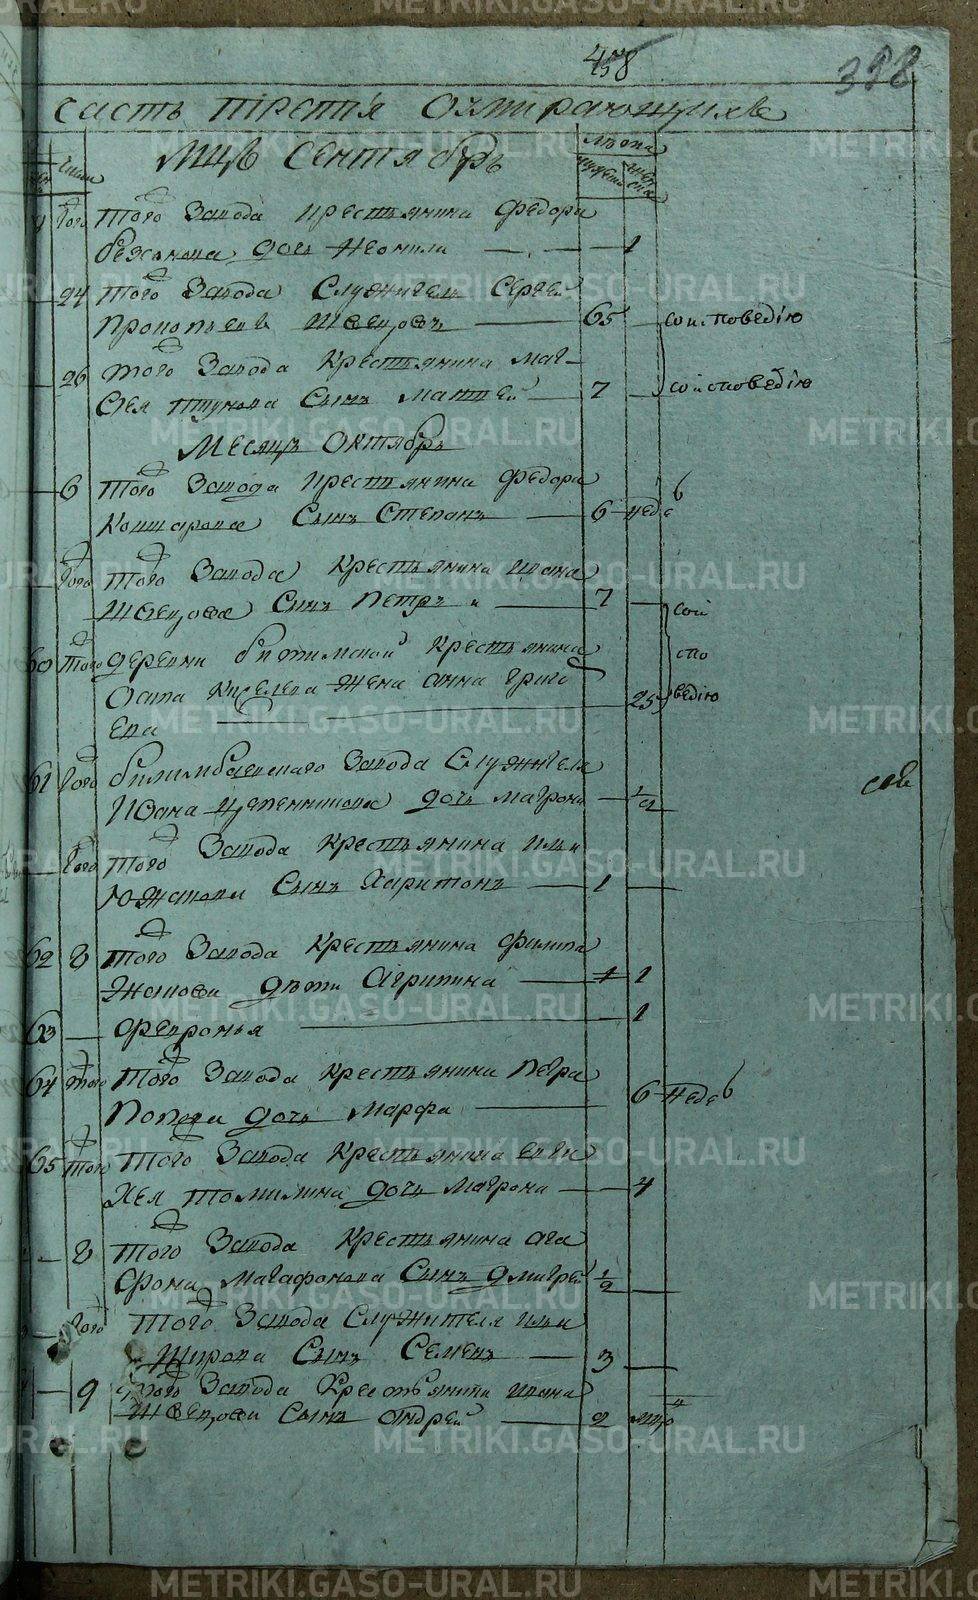 458
388
часть третiя о умирающихъ
Мцъ Сентябрь
лѣта
числа
мужеска
женска
Того того Завода крестьянина Федора
дочь Неонила 1
24 того Завода Служителя Сергей
Прокопьевъ Швецовъ 65 со исповедiю
26 того Завода Крестьянина
Сынъ Матвей 7 со исповедiю
Месяцъ Октябрь
6 того Завода крестьянина Федора
Сынъ Степанъ 6 неде
Того того Завода Крестьянина Ивана
Швецова Сынъ Петръ 7 сои
60 того деревни Битимской Крестьянина спо
Осипа Киселева жена Анна Григо 25 ведiю
ева
61 того Билимбаевского Завода Служителя
Iоана дочь Матрона 1/2
Того того Завода Крестьянина Ильи
Южакова Сынъ Харитонъ 1
62 8 того Завода Крестьянина Филипа
дѣти Агрипина 1 1
63 Февронья 1
64 того того Завода Крестьянина Петра
Попова дочь Марфа 6 неде
65 того того Завода Крестьянина
Томилина дочь Матрона 4
8 того Завода Крестьянина Ага
фона Магафонова Сынъ Дмитрей 1/2
Того того Завода Служителя Ильи
Широва Сынъ Семенъ 3
9 того Завода Крестьянина Ивана
Швецова Сынъ Андрей 2 мцо
METRIKI.GASO-URAL.RU